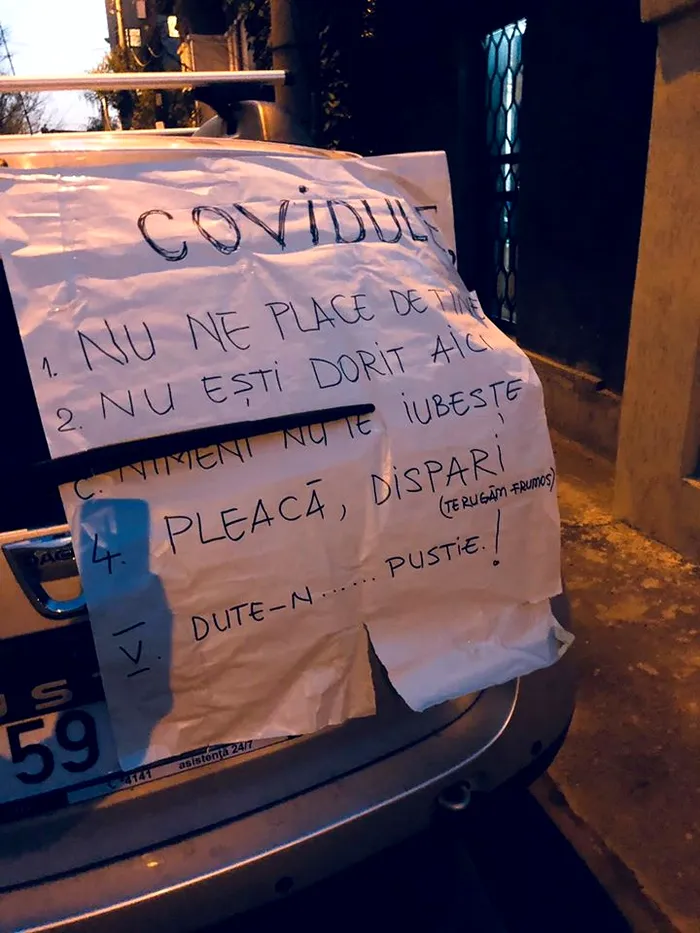 COVIDULE,
1. NU NE PLACE DE TINE
2. NU EȘTI DORIT AICI
C. NIMENI NU TE IUBEȘTE
4. PLEACĂ, DISPARI
(TE RUGĂM FRUMOS)
V. DUTE-N...... PUSTIE.!
59
4141 asistență 24/7